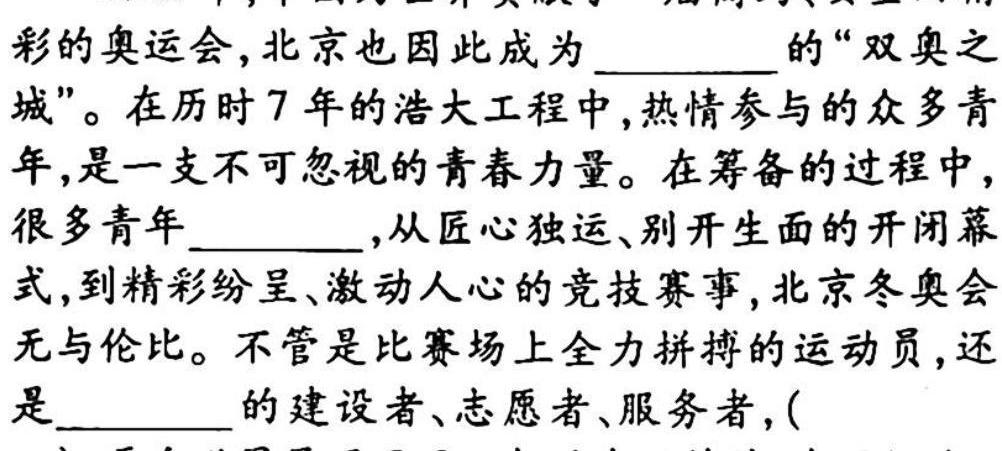 彩的奥运会,北京也因此成为________的“双奥之
城”。在历时7年的浩大工程中,热情参与的众多青
年,是一支不可忽视的青春力量。在筹备的过程中,
很多青年________,从匠心独运、别开生面的开闭幕
式,到精彩纷呈、激动人心的竞技赛事,北京冬奥会
无与伦比。不管是比赛场上全力拼搏的运动员,还
是________的建设者、志愿者、服务者,(